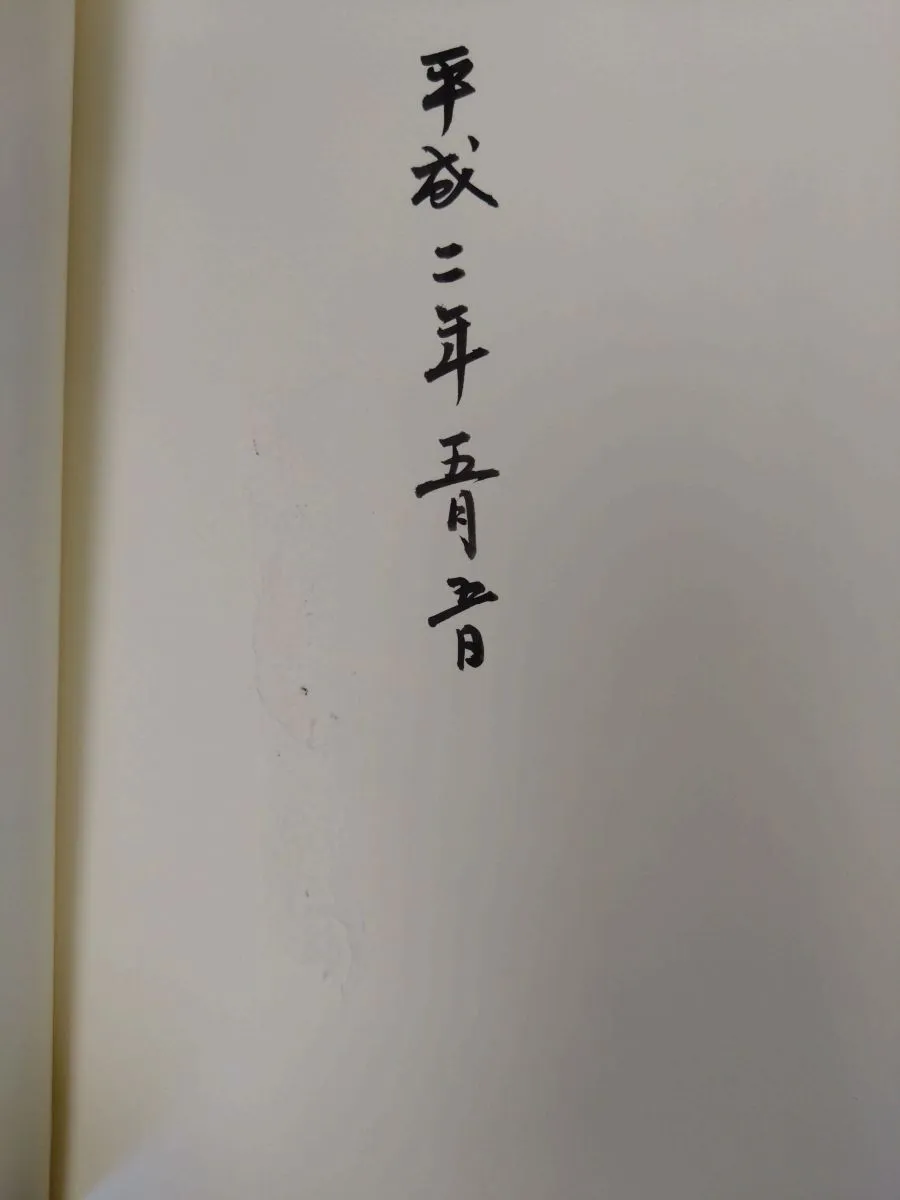 平成二年五月五日